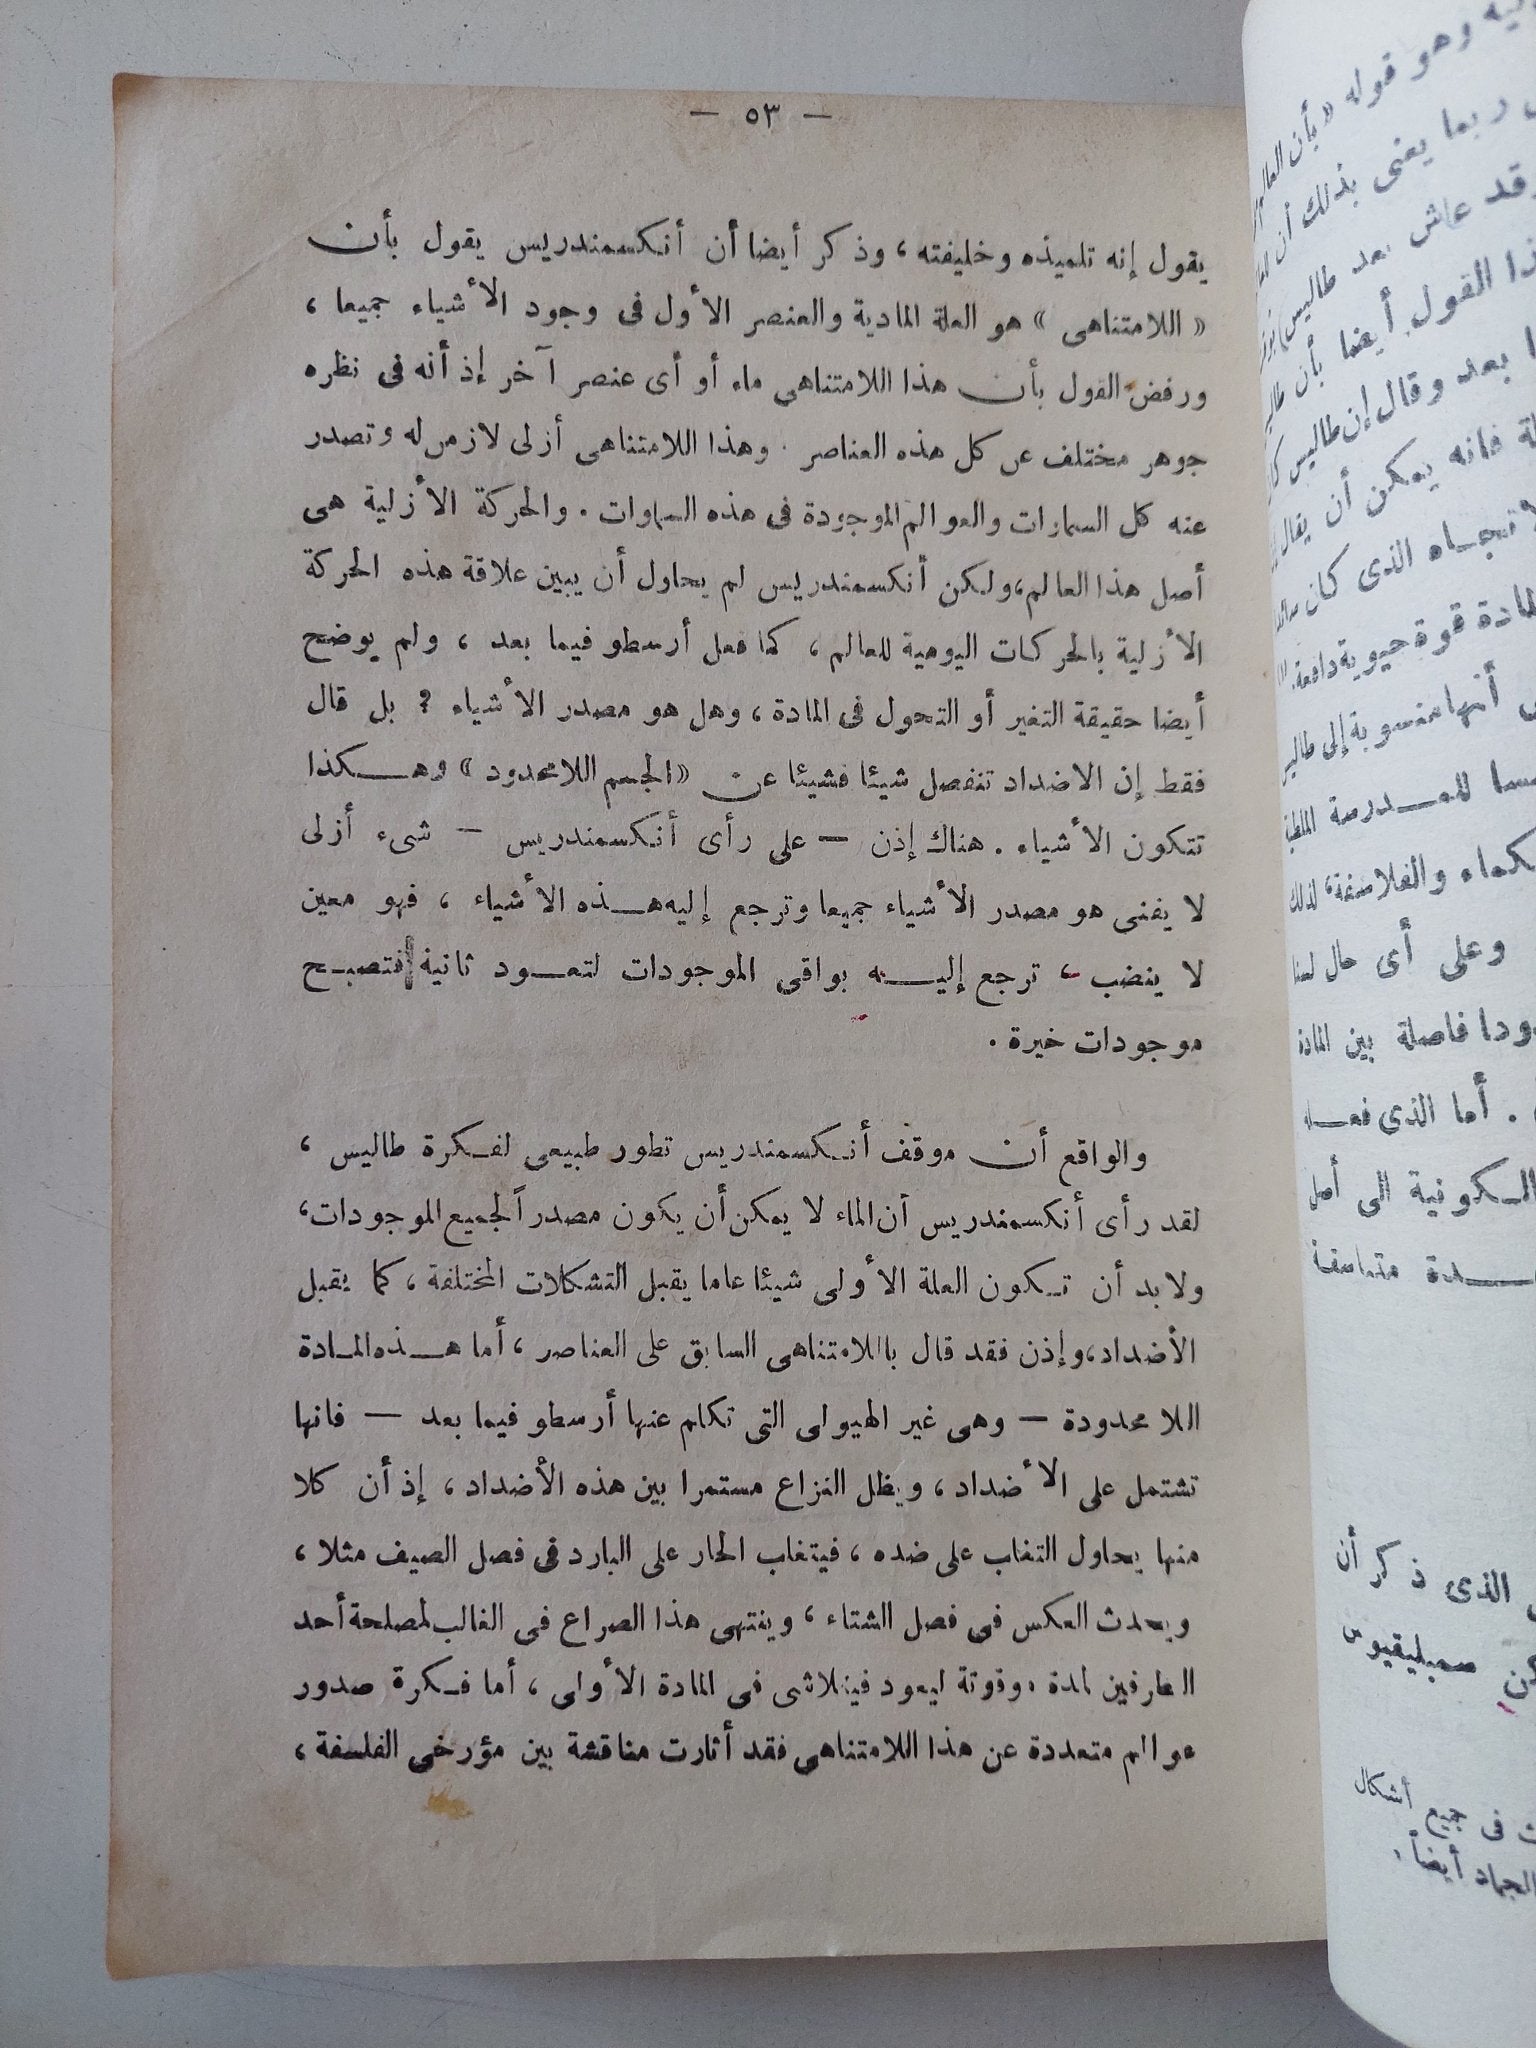 — ٥٣ —
يقول إنه تلميذه وخليفته ، وذكر أيضا أن أنكسمندريس يقول بأن
« اللامتناهى » هو العلة المادية والعنصر الأول فى وجود الأشياء جميعا ،
ورفض القول بأن هذا اللامتناهى ماء أو أى عنصر آخر إذ أنه فى نظره
جوهر مختلف عن كل هذه العناصر . وهذا اللامتناهى أزلى لازمن له وتصدر
عنه كل السماوات والعوالم الموجودة فى هذه السماوات . والحركة الأزلية هى
أصل هذا العالم، ولكن أنكسمندريس لم يحاول أن يبين علاقة هذه الحركة
الأزلية بالحركات اليومية للعالم ، كما فعل أرسطو فيما بعد ، ولم يوضح
أيضا حقيقة التغير أو التحول فى المادة ، وهل هو مصدر الأشياء ؟ بل قال
فقط إن الاضداد تنفصل شيئا فشيئا عن «الجسم اللامحدود» وهكذا
تتكون الأشياء . هناك إذن — على رأى أنكسمندريس — شىء أزلى
لا يفنى هو مصدر الأشياء جميعا وترجع إليه هذه الأشياء ، فهو معين
لا ينضب ، ترجع إليه بواقى الموجودات لتعود ثانية فتصبح
موجودات خيرة .
والواقع أن موقف أنكسمندريس تطور طبيعى لفكرة طاليس ،
لقد رأى أنكسمندريس أن الماء لا يمكن أن يكون مصدراً لجميع الموجودات،
ولابد أن تكون العلة الأولى شيئا عاما يقبل التشكلات المختلفة ، كما يقبل
الأضداد، وإذن فقد قال باللامتناهى السابق على العناصر ، أما هذه المادة
اللا محدودة — وهى غير الهيولى التى تكلم عنها أرسطو فيما بعد — فانها
تشتمل على الأضداد ، ويظل النزاع مستمرا بين هذه الأضداد ، إذ أن كلا
منها يحاول التغلب على ضده ، فيتغلب الحار على البارد فى فصل الصيف مثلا ،
ويحدث العكس فى فصل الشتاء ، وينتهى هذا الصراع فى الغالب لمصلحة أحد
الطرفين لمدة موقوتة ليعود فيتلاشى فى المادة الأولى ، أما فكرة صدور
عوالم متعددة عن هذا اللامتناهى فقد أثارت مناقشة بين مؤرخى الفلسفة ،
وهو قوله « بأن العالم
ربما يعنى بذلك أن
وقد عاش بعد طاليس
القول أيضا بأن
بعد وقال إن طاليس
فانه يمكن أن يقال
الذى كان
قوة حيوية دافعة.
أنها منسوبة إلى
للمدرسة
والفلاسفة، لذلك
وعلى أى حال لسنا
فاصلة بين المادة
. أما الذى فعله
الكونية الى أصل
متناسقة
الذى ذكر أن
صمبليقيوس
فى جميع أشكال
الجماد أيضاً .